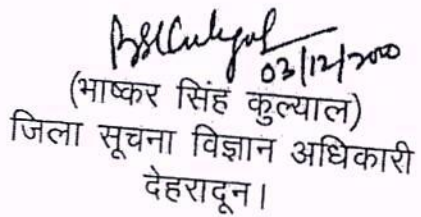 03/12/2000
(भाष्कर सिंह कुल्याल)
जिला सूचना विज्ञान अधिकारी
देहरादून।